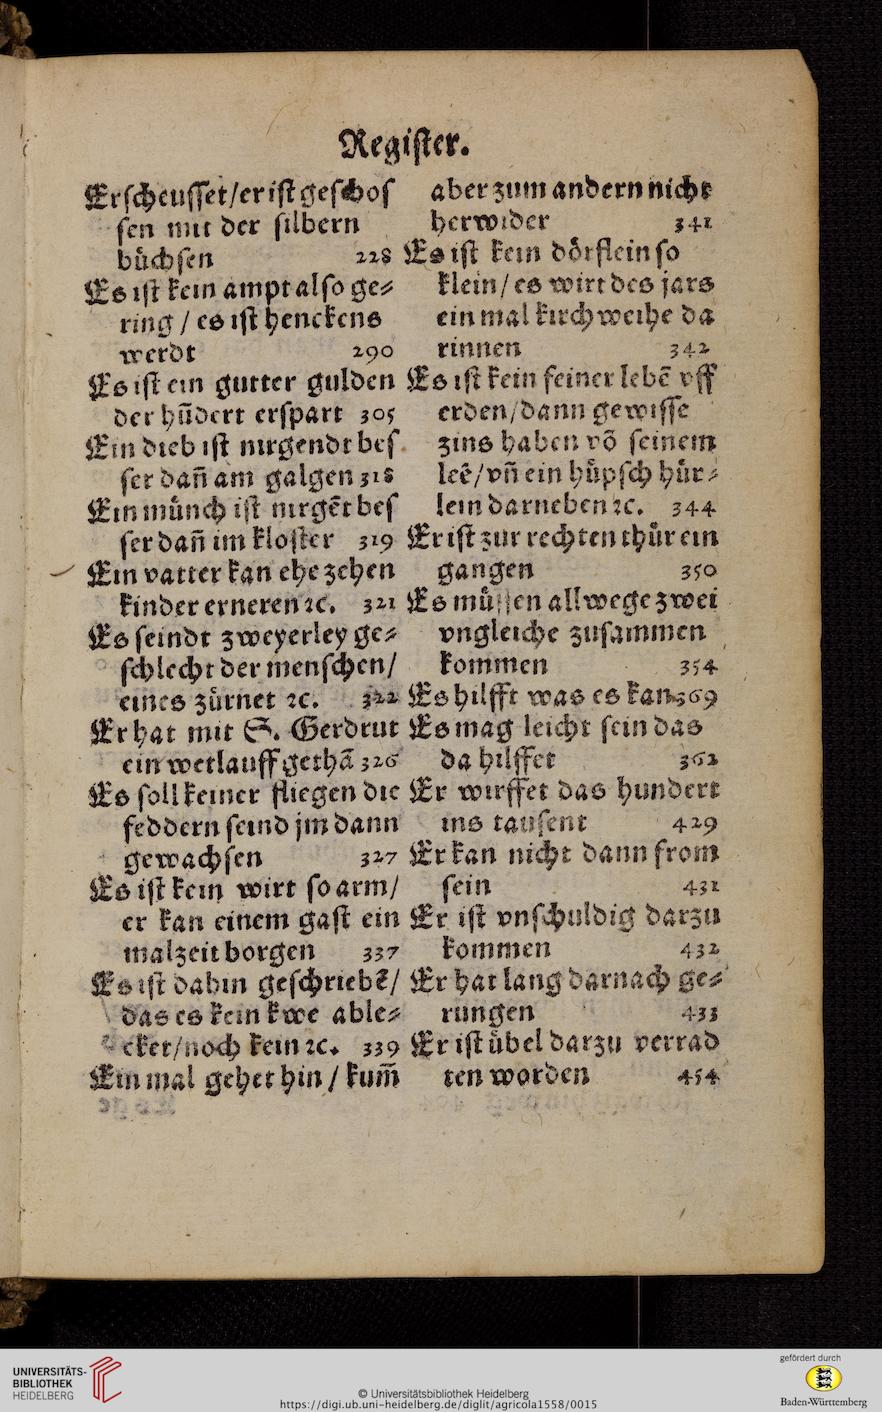 Register.
Er scheusset/er ist geschos
sen mit der silbern
büchsen 228
Es ist kein ampt also ge⸗
ring / es ist henckens
werdt 290
Es ist ein gutter gulden
der hūdert erspart 305
Ein dieb ist nirgendt bes
ser dañ am galgen 318
Ein münch ist nirgēt bes
ser dañ im kloster 319
Ein vatter kan ehe zehen
kinder erneren ꝛc. 321
Es seindt zweyerley ge⸗
schlecht der menschen/
eines zürnet ꝛc. 322
Er hat mit S. Gerdrut
ein wetlauff gethā 326
Es soll keiner fliegen die
feddern seind jm dann
gewachsen 327
Es ist kein wirt so arm/
er kan einem gast ein
malzeit borgen 337
Es ist dahin geschriebē/
das es kein kwe able⸗
cket/noch kein ꝛc. 339
Ein mal gehet hin / kum̄
aber zum andern nicht
herwider 341
Es ist kein dörflein so
klein/ es wirt des jars
ein mal kirchweihe da
rinnen 342
Es ist kein feiner lebē vff
erden/dann gewisse
zins haben vō seinem
leē/vñ ein hüpsch hür⸗
lein darneben ꝛc. 344
Er ist zur rechten thür ein
gangen 350
Es müssen allwege zwei
vngleiche zusammen
kommen 354
Es hilfft was es kan 369
Es mag leicht sein das
da hilffet 362
Er wirffet das hundert
ins tausent 429
Er kan nicht dann from
sein 431
Er ist vnschuldig darzu
kommen 432
Er hat lang darnach ge⸗
rungen 433
Er ist übel darzu verrad
ten worden 454
UNIVERSITÄTS-
BIBLIOTHEK
HEIDELBERG
© Universitätsbibliothek Heidelberg
https://digi.ub.uni-heidelberg.de/diglit/agricola1558/0015
gefördert durch
Baden-Württemberg